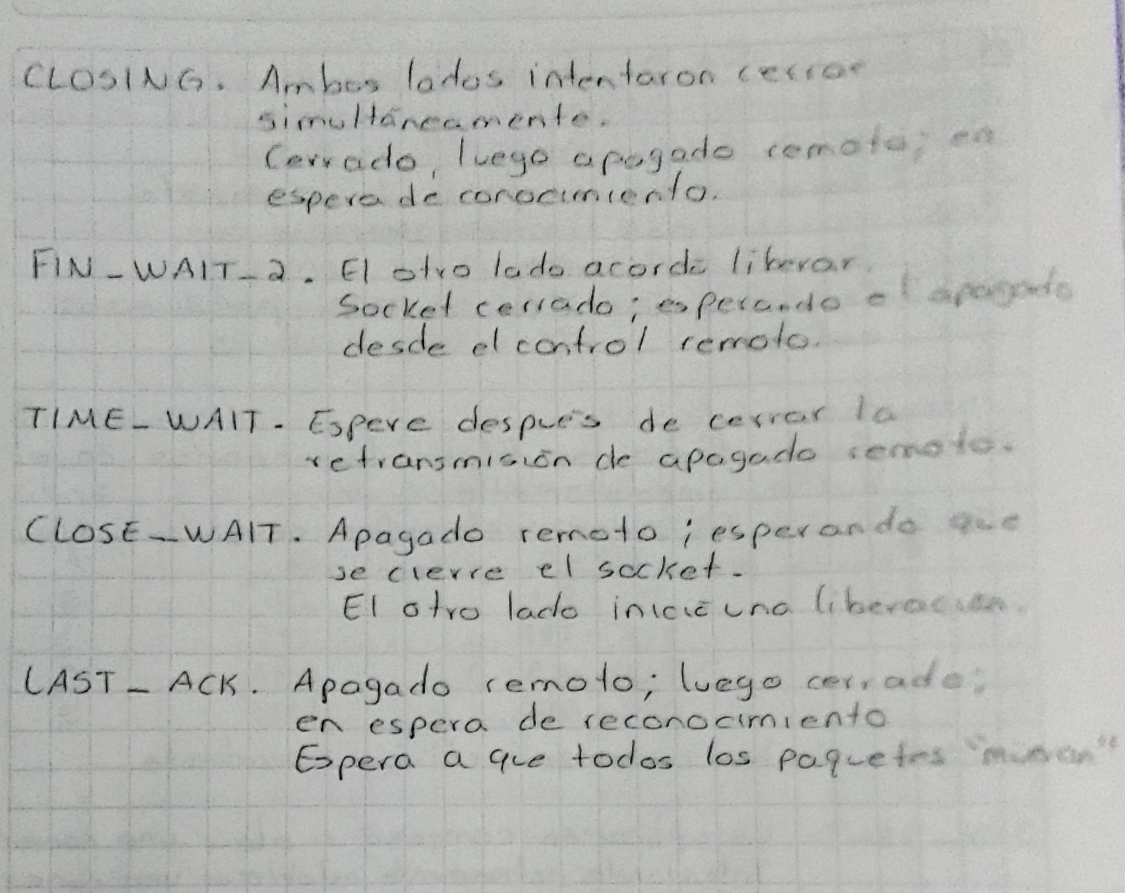 CLOSING. Ambos lados intentaron cerrar
simultáneamente.
Cerrado, luego apagado remoto; en
espera de conocimiento.
FIN_WAIT_2. El otro lado acordó liberar.
Socket cerrado; esperando el apagado
desde el control remoto.
TIME_WAIT. Espere después de cerrar la
retransmisión de apagado remoto.
CLOSE_WAIT. Apagado remoto; esperando que
se cierre el socket.
El otro lado inició una liberación.
LAST_ACK. Apagado remoto; luego cerrado;
en espera de reconocimiento
Espera a que todos los paquetes "mueran"